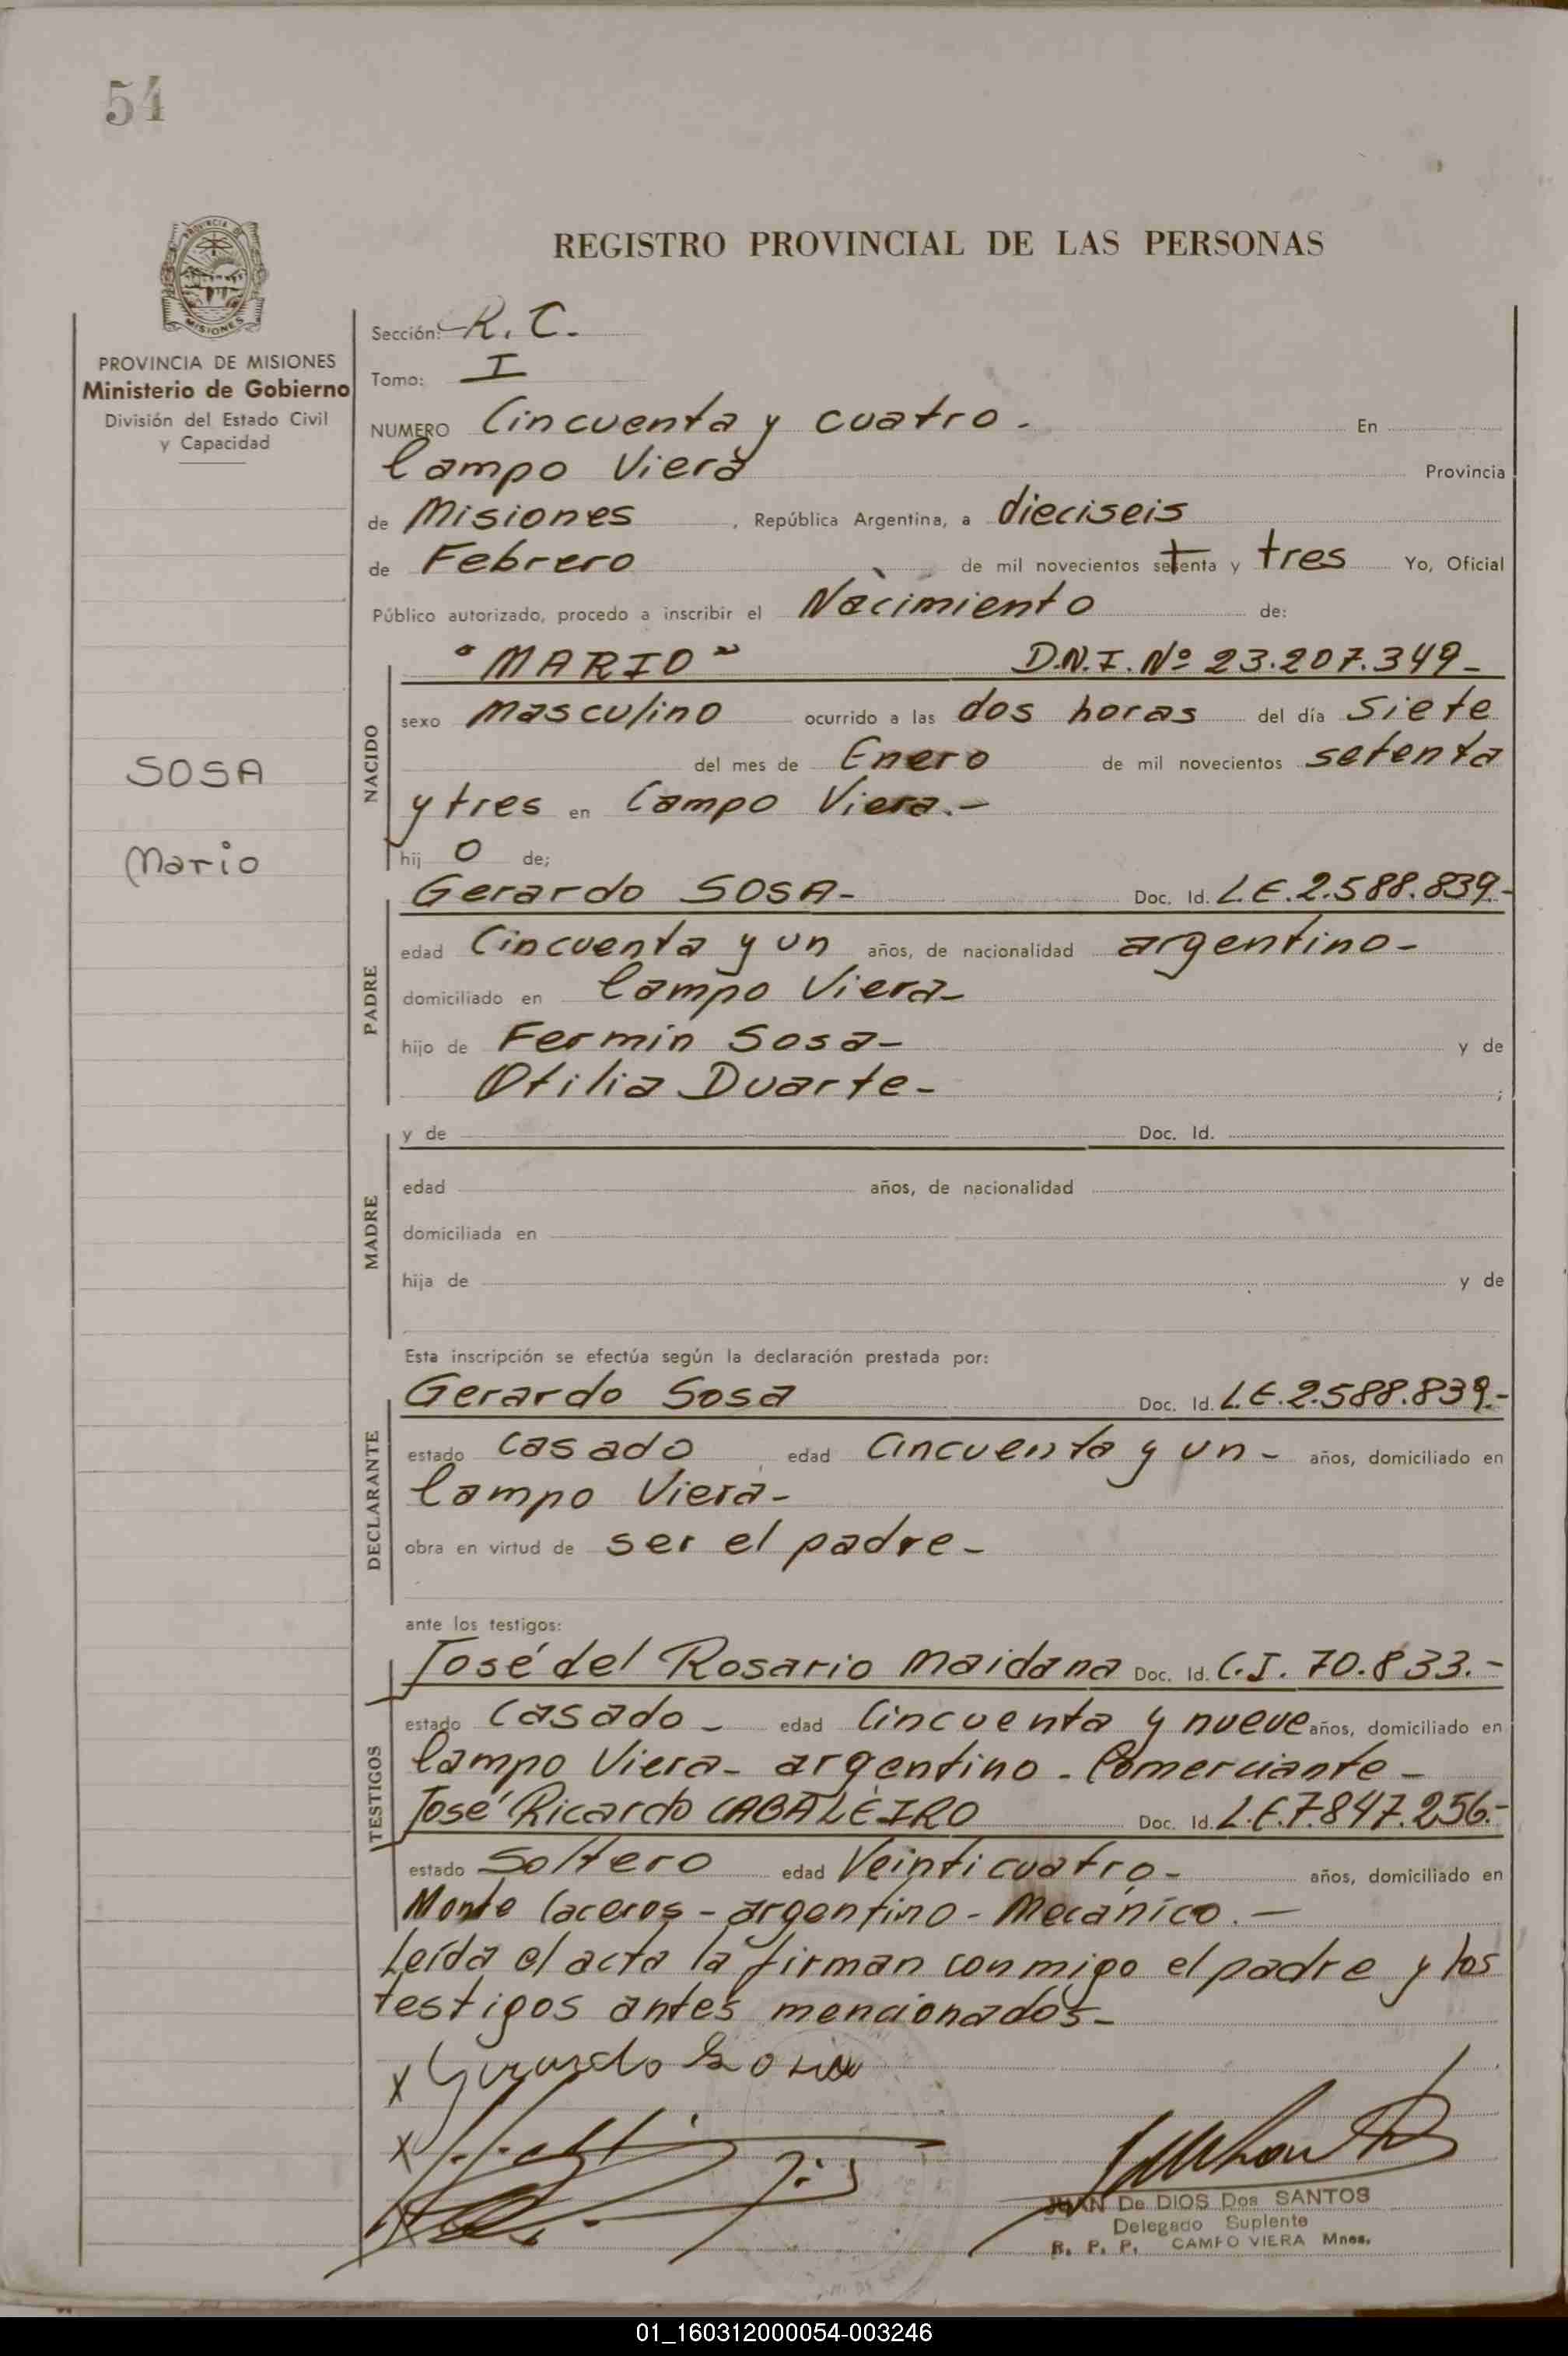 54
REGISTRO PROVINCIAL DE LAS PERSONAS
MISIONES
PROVINCIA DE MISIONES
Ministerio de Gobierno
División del Estado Civil
y Capacidad
SOSA
Mario
Sección: R. C.
Tomo: I
NUMERO Cincuenta y cuatro. En
Campo Viera Provincia
de Misiones, República Argentina, a dieciseis
de Febrero de mil novecientos setenta y tres Yo, Oficial
Público autorizado, procedo a inscribir el Nacimiento de:
NACIDO
"MARIO" D.N.I. Nº 23.207.349-
sexo masculino ocurrido a las dos horas del día siete
del mes de Enero de mil novecientos setenta
y tres en Campo Viera.-
hij o de;
PADRE
Gerardo SOSA- Doc. Id. L.E.2.588.839.-
edad Cincuenta y un años, de nacionalidad argentino-
domiciliado en Campo Viera-
hijo de Fermin Sosa- y de
Otilia Duarte- ;
MADRE
y de Doc. Id.
edad años, de nacionalidad
domiciliada en
hija de y de
Esta inscripción se efectúa según la declaración prestada por:
DECLARANTE
Gerardo Sosa Doc. Id. L.E.2.588.839.-
estado casado, edad Cincuenta y un- años, domiciliado en
Campo Viera-
obra en virtud de ser el padre-
ante los testigos:
TESTIGOS
José del Rosario Maidana Doc. Id. C.I. 70.833.-
estado casado- edad Cincuenta y nueve años, domiciliado en
Campo Viera- argentino- Comerciante-
José Ricardo CABALEIRO Doc. Id. L.E.7.847.256.-
estado Soltero edad Veinticuatro- años, domiciliado en
Monte Caceros- argentino- Mecánico.-
Leída el acta la firman conmigo el padre y los
testigos antes mencionados-
x Gerardo Sosa
x
x
JUAN De DIOS Dos SANTOS
Delegado Suplente
R. P. P. CAMPO VIERA Mnes.
01_160312000054-003246